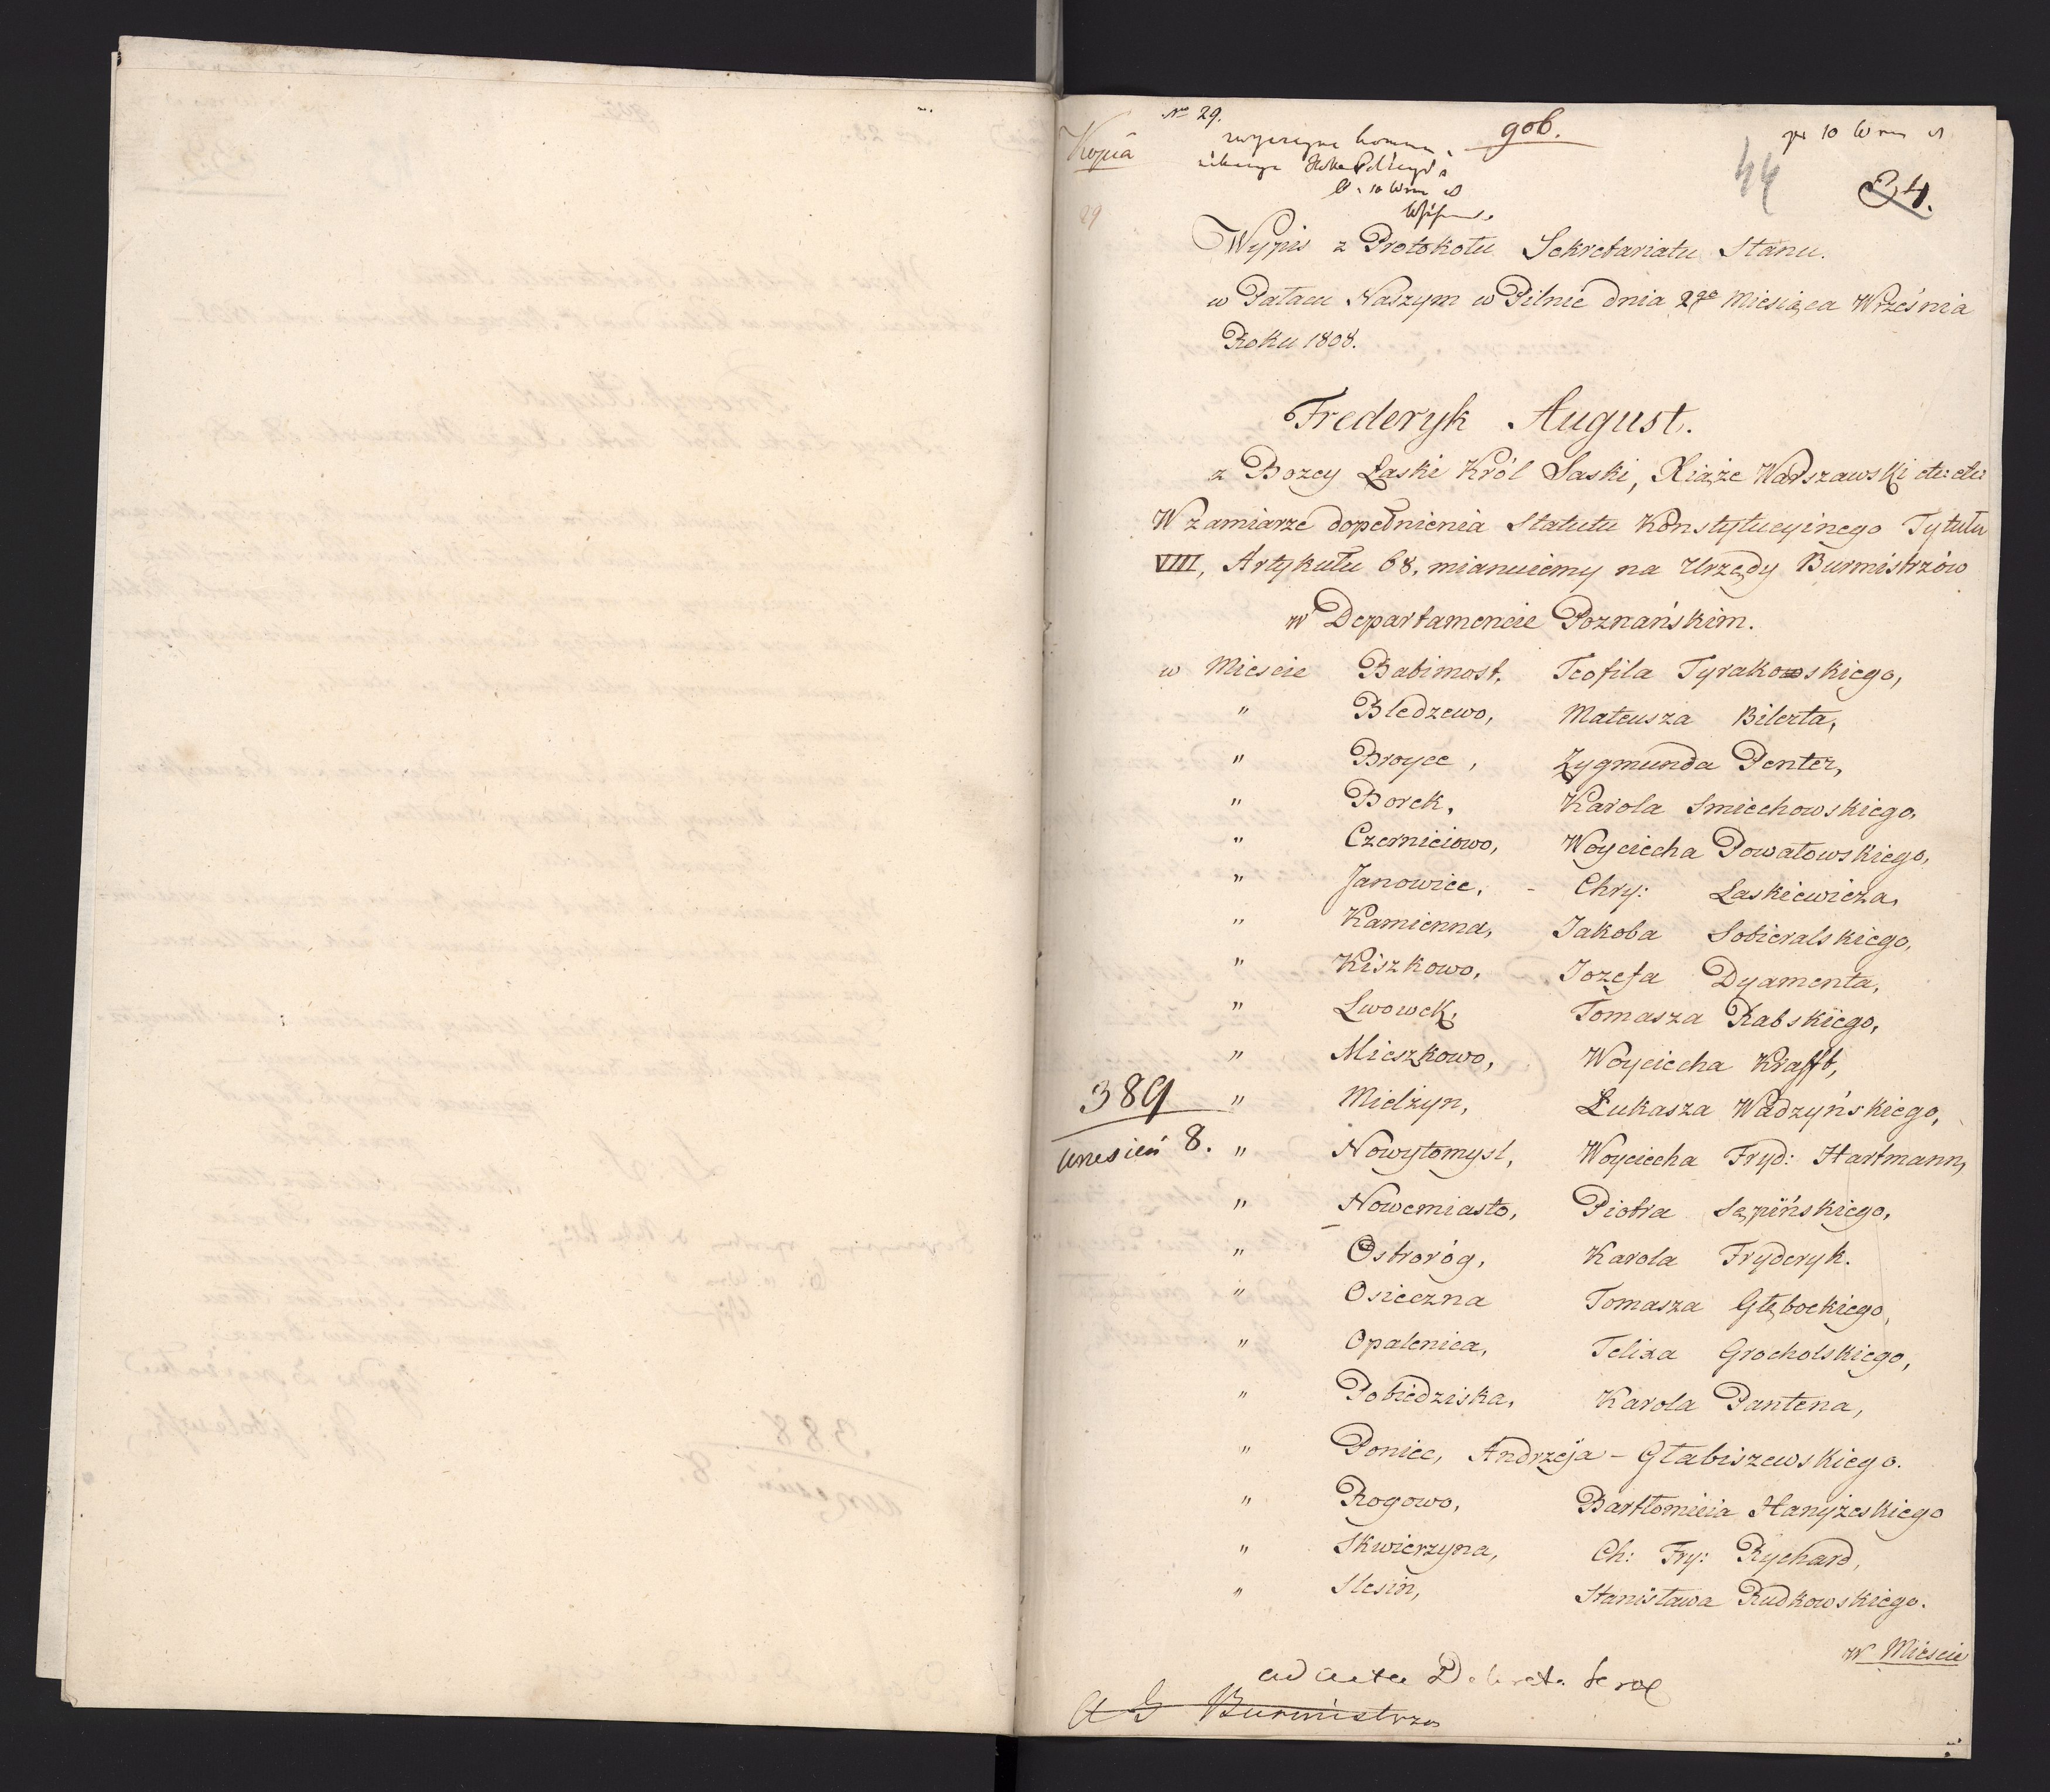 Kopia
No 29.
gob.
44
34.
29
Wypis z Protokołu Sekretariatu Stanu.
w Pałacu Naszym w Pilnic dnia 2go Miesiąca Września
Roku 1808.
Frederyk August.
z Bozey Łaski Król Saski, Xiąże Warszawski etc: etc:
W zamiarze dopełnienia Statutu Konstytucyinego Tytułu
VIII, Artykułu 68. mianuiemy na Urzędy Burmistrzów
w Departamencie Poznańskim.
w Miescie Babimost. Teofila Tyrakowskiego,
" Bledzewo, Mateusza Bilerta,
" Broyce, Zygmunda Penter,
" Borek, Karola Smiechowskiego,
" Czerniciowo, Woyciecha Powałowskiego,
" Janowice, - Chry: Laskiewicza,
" Kamienna, Jakoba Sobieralskiego,
" Kiszkowo, Jozefa Dyamenta,
" Lwowek, Tomasza Rabskiego,
" Mieszkowo, Woyciecha Krafft,
389 " Mielżyn, Łukasza Wadzyńskiego,
wrzesień 8. " Nowytomysl, Woyciecha Fryd: Hartmann,
" Nowemiasto, Piotra Sępińskiego,
" Ostroróg, Karola Fryderyk.
" Osieczna Tomasza Głębockiego,
" Opalenica, Felixa Grocholskiego,
" Pobiedziska, Karola Pantena,
" Poniec, Andrzeja - Głabiszewskiego.
" Rogowo, Bartłomieia Hanyżeskiego
" Skwierzyna, Ch: Fry: Rychard,
" Slesin, Stanisława Rudkowskiego.
w Miescie
ad acta
Burmistrze